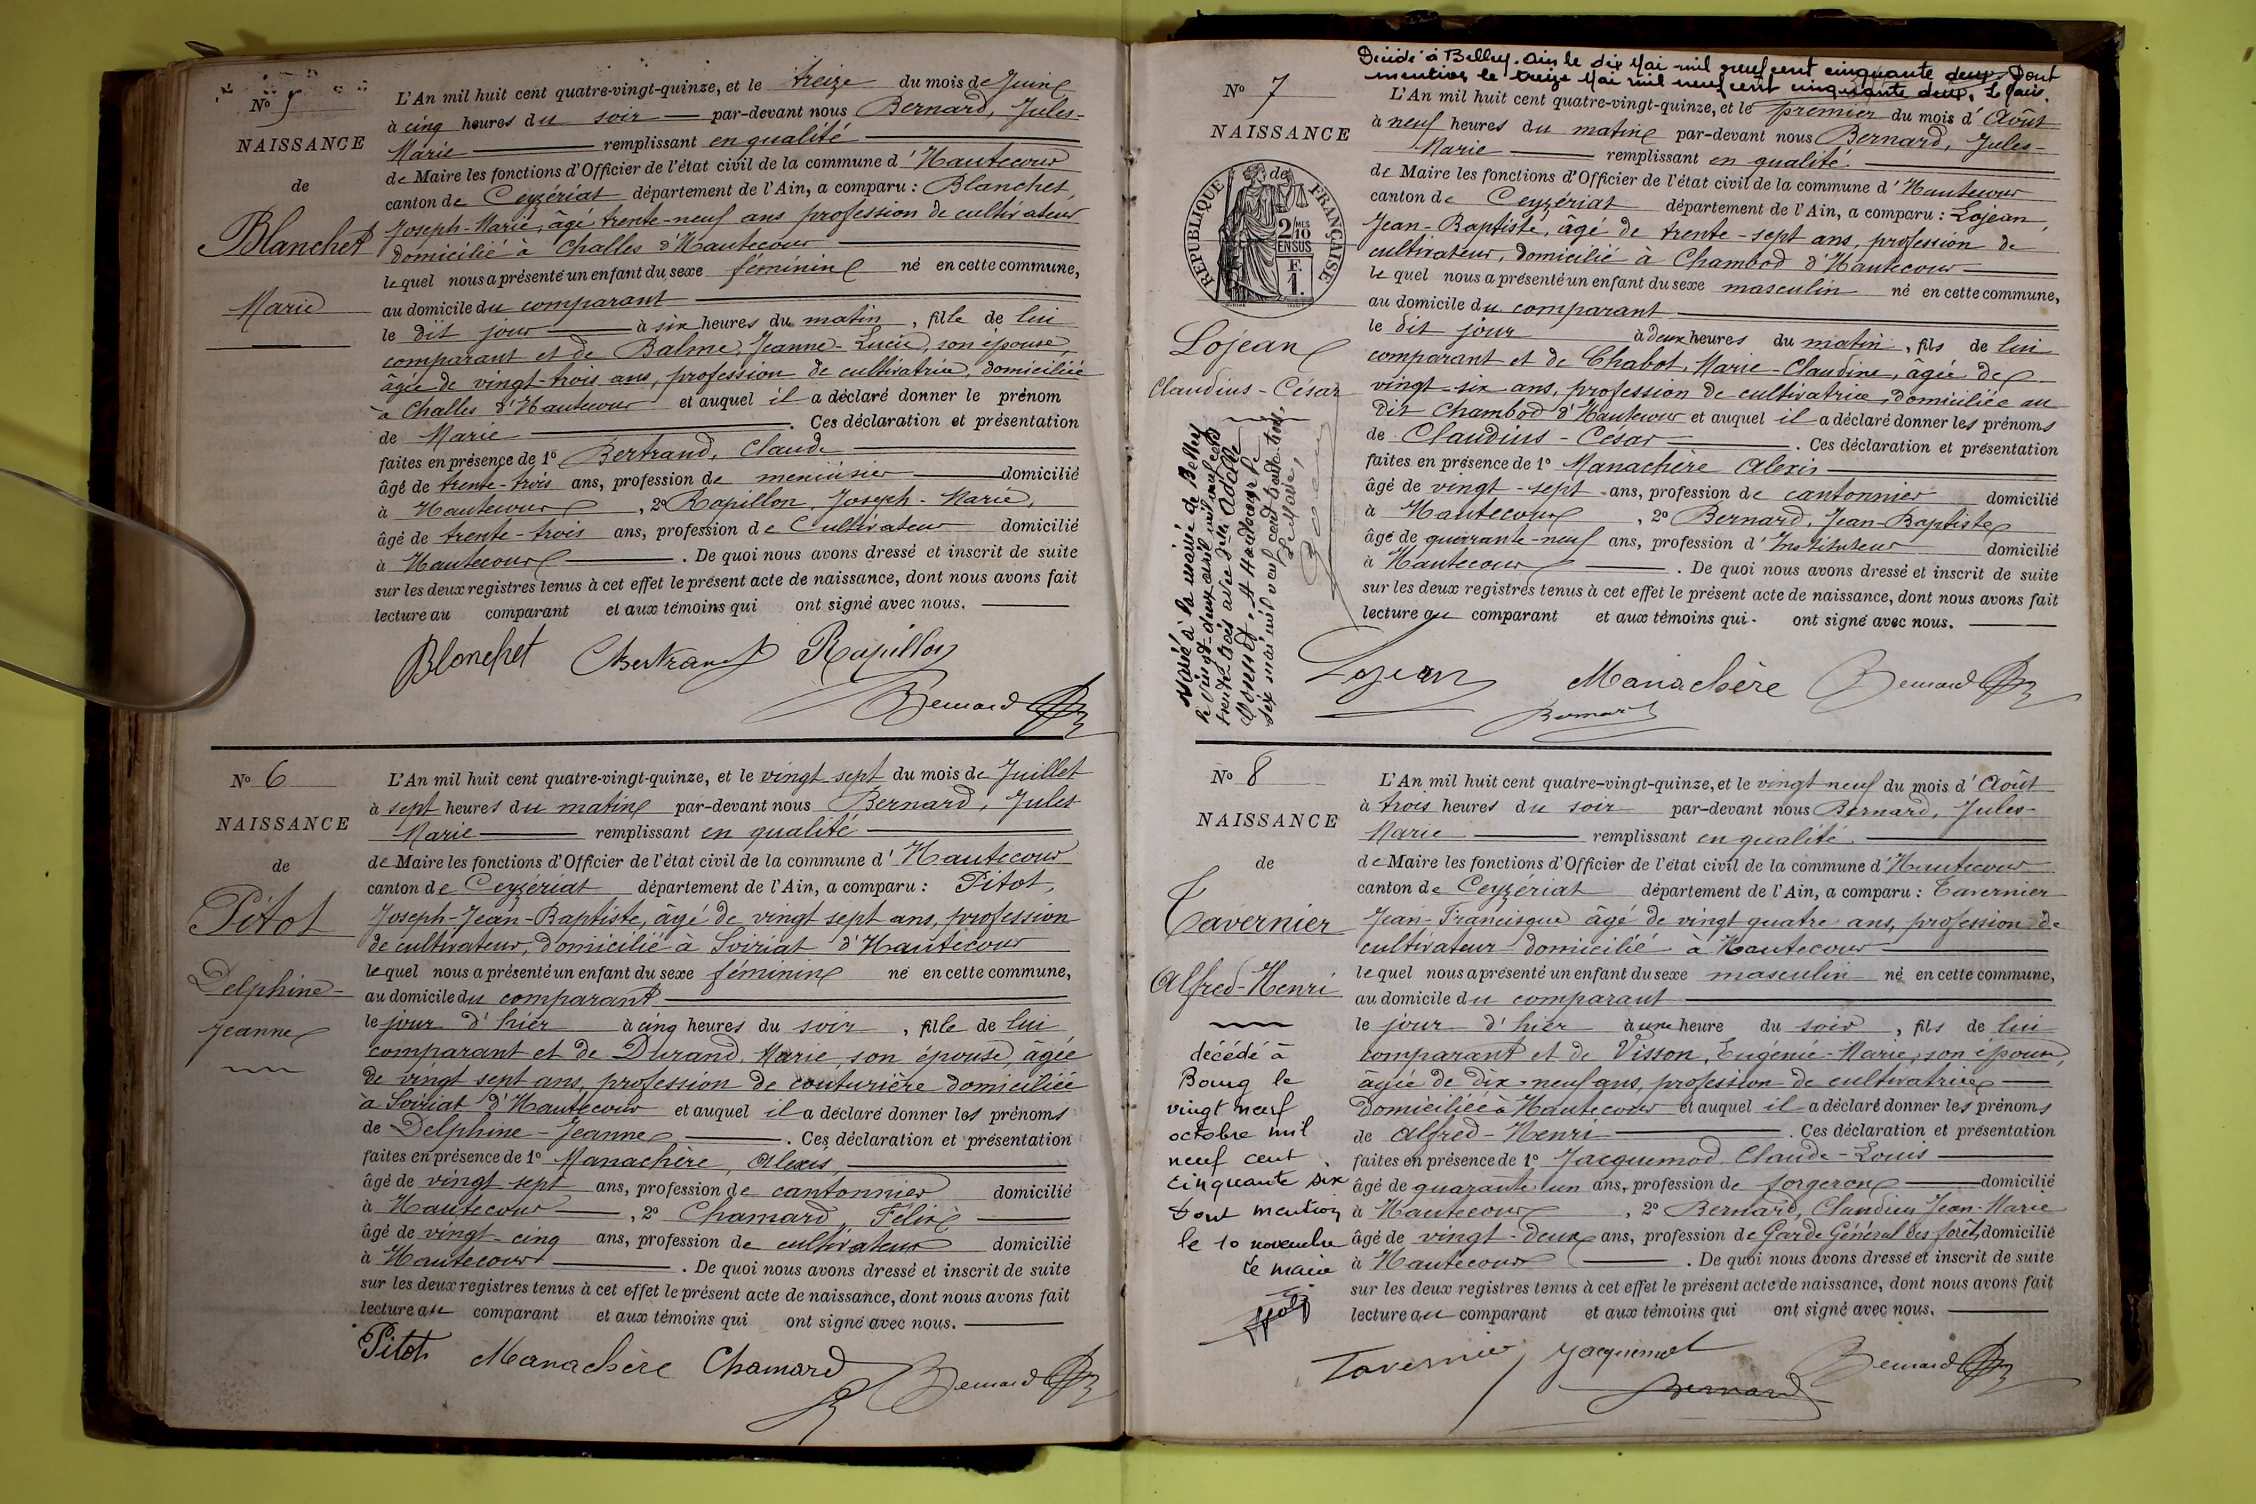 No 5
NAISSANCE
de
Blanchet
Marie
L'An mil huit cent quatre-vingt-quinze, et le treize du mois de Juin
à cinq heures du soir par-devant nous Bernard, Jules-
Marie remplissant en qualité
de Maire les fonctions d'Officier de l'état civil de la commune d'Hautecour
canton de Ceyzériat département de l'Ain, a comparu : Blanchet,
Joseph-Marie, âgé trente-neuf ans profession de cultivateur
domicilié à Challes d'Hautecour
lequel nous a présenté un enfant du sexe féminin né en cette commune,
au domicile du comparant
le dit jour à six heures du matin, fille de lui
comparant et de Balme, Jeanne-Lucie, son épouse,
âgée de vingt-trois ans, profession de cultivatrice, domiciliée
à Challes d'Hautecour et auquel il a déclaré donner le prénom
de Marie. Ces déclaration et présentation
faites en présence de 1o Bertrand, Claude
âgé de trente-trois ans, profession de menuisier domicilié
à Hautecour, 2o Rapillon, Joseph-Marie,
âgé de trente-trois ans, profession de Cultivateur domicilié
à Hautecour. De quoi nous avons dressé et inscrit de suite
sur les deux registres tenus à cet effet le présent acte de naissance, dont nous avons fait
lecture au comparant et aux témoins qui ont signé avec nous.
Blanchet Bertrand Rapillon
Bernard
No 6
NAISSANCE
de
Pitot
Delphine-
Jeanne
L'An mil huit cent quatre-vingt-quinze, et le vingt sept du mois de Juillet
à sept heures du matin par-devant nous Bernard, Jules
Marie remplissant en qualité
de Maire les fonctions d'Officier de l'état civil de la commune d'Hautecour
canton de Ceyzériat département de l'Ain, a comparu : Pitot,
Joseph-Jean-Baptiste, âgé de vingt sept ans, profession
de cultivateur, domicilié à Soiriat d'Hautecour
lequel nous a présenté un enfant du sexe féminin né en cette commune,
au domicile du comparant
le jour d'hier à cinq heures du soir, fille de lui
comparant et de Durand, Marie, son épouse, âgée
de vingt sept ans, profession de couturière domiciliée
à Soiriat d'Hautecour et auquel il a déclaré donner les prénoms
de Delphine-Jeanne. Ces déclaration et présentation
faites en présence de 1o Manachère, Alexis,
âgé de vingt sept ans, profession de cantonnier domicilié
à Hautecour, 2o Chamard, Félix
âgé de vingt-cinq ans, profession de cultivateur domicilié
à Hautecour. De quoi nous avons dressé et inscrit de suite
sur les deux registres tenus à cet effet le présent acte de naissance, dont nous avons fait
lecture au comparant et aux témoins qui ont signé avec nous.
Pitot Manachère Chamard Bernard
Décédé à Belley. Ain le dix Mai mil neuf cent cinquante deux. Dont
mention le treize Mai mil neuf cent cinquante deux.
No 7
NAISSANCE
de
RÉPUBLIQUE FRANÇAISE
2/10 MES
EN SUS
F.
1.
Lojean
Claudius-César
Marié à la mairie de Belley
le vingt-deux avril mil neuf cent
trente trois avec Adèle
A Hautecour le
six mai mil neuf cent trente trois,
Le Maire,
L'An mil huit cent quatre-vingt-quinze, et le premier du mois d'Août
à neuf heures du matin par-devant nous Bernard, Jules-
Marie remplissant en qualité
de Maire les fonctions d'Officier de l'état civil de la commune d'Hautecour
canton de Ceyzériat département de l'Ain, a comparu : Lojean,
Jean-Baptiste, âgé de trente-sept ans, profession de
cultivateur, domicilié à Chambod d'Hautecour
lequel nous a présenté un enfant du sexe masculin né en cette commune,
au domicile du comparant
le dit jour à deux heures du matin, fils de lui
comparant et de Chabot, Marie-Claudine, âgée de
vingt-six ans, profession de cultivatrice, domiciliée au
dit Chambod d'Hautecour et auquel il a déclaré donner les prénoms
de Claudius-César. Ces déclaration et présentation
faites en présence de 1o Manachère Alexis
âgé de vingt-sept ans, profession de cantonnier domicilié
à Hautecour, 2o Bernard, Jean-Baptiste
âgé de quarante-neuf ans, profession d'Instituteur domicilié
à Hautecour. De quoi nous avons dressé et inscrit de suite
sur les deux registres tenus à cet effet le présent acte de naissance, dont nous avons fait
lecture au comparant et aux témoins qui ont signé avec nous.
Lojean Manachère Bernard
Bernard
No 8
NAISSANCE
de
Tavernier
Alfred-Henri
décédé à
Bourg le
vingt neuf
octobre mil
neuf cent
cinquante six
dont mention
le 10 novembre
Le maire
L'An mil huit cent quatre-vingt-quinze, et le vingt neuf du mois d'Août
à trois heures du soir par-devant nous Bernard, Jules-
Marie remplissant en qualité
de Maire les fonctions d'Officier de l'état civil de la commune d'Hautecour
canton de Ceyzériat département de l'Ain, a comparu : Tavernier
Jean-Francisque âgé de vingt quatre ans, profession de
cultivateur domicilié à Hautecour
lequel nous a présenté un enfant du sexe masculin né en cette commune,
au domicile du comparant
le jour d'hier à une heure du soir, fils de lui
comparant et de Visson, Eugénie-Marie, son épouse,
âgée de dix-neuf ans, profession de cultivatrice
domiciliée à Hautecour et auquel il a déclaré donner les prénoms
de Alfred-Henri. Ces déclaration et présentation
faites en présence de 1o Jacquemod Claude-Louis
âgé de quarante un ans, profession de forgeron domicilié
à Hautecour, 2o Bernard, Claudius Jean-Marie
âgé de vingt-deux ans, profession de Garde Général des forêts domicilié
à Hautecour. De quoi nous avons dressé et inscrit de suite
sur les deux registres tenus à cet effet le présent acte de naissance, dont nous avons fait
lecture au comparant et aux témoins qui ont signé avec nous.
Tavernier Jacquemod Bernard
Bernard